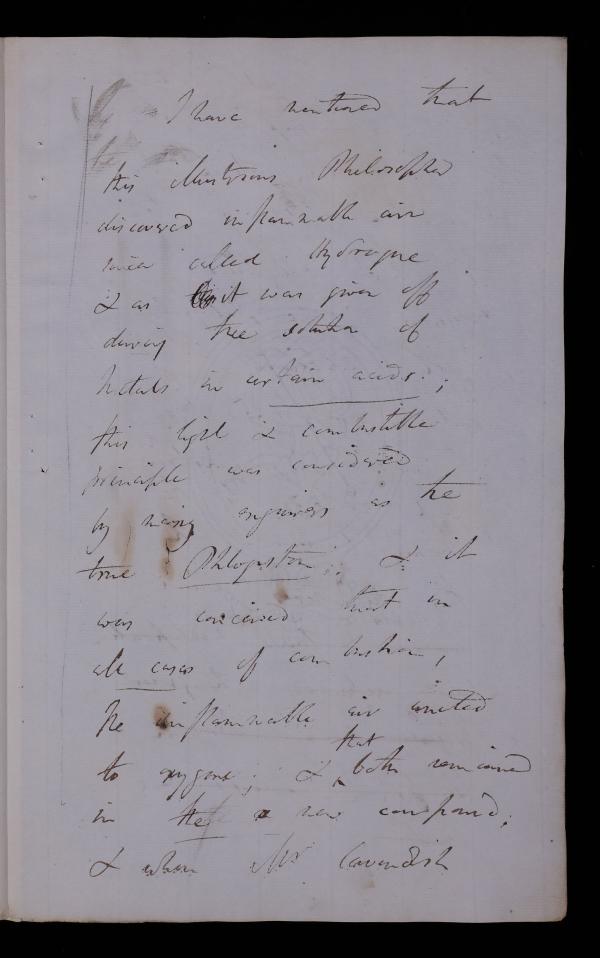 I have mentioned that
this illustrious Philosopher
discovered inflammable air
since called Hydrogene
& as it was given off
during the solution of
Metals in certain acids;
this light & combustible
principle was considered
by many enquirers as the
true Phlogiston; & it
was conceived that in
all cases of combustion,
the inflammable air united
to oxygene; & that both remained
in the a new compound;
& when Mr Cavendish